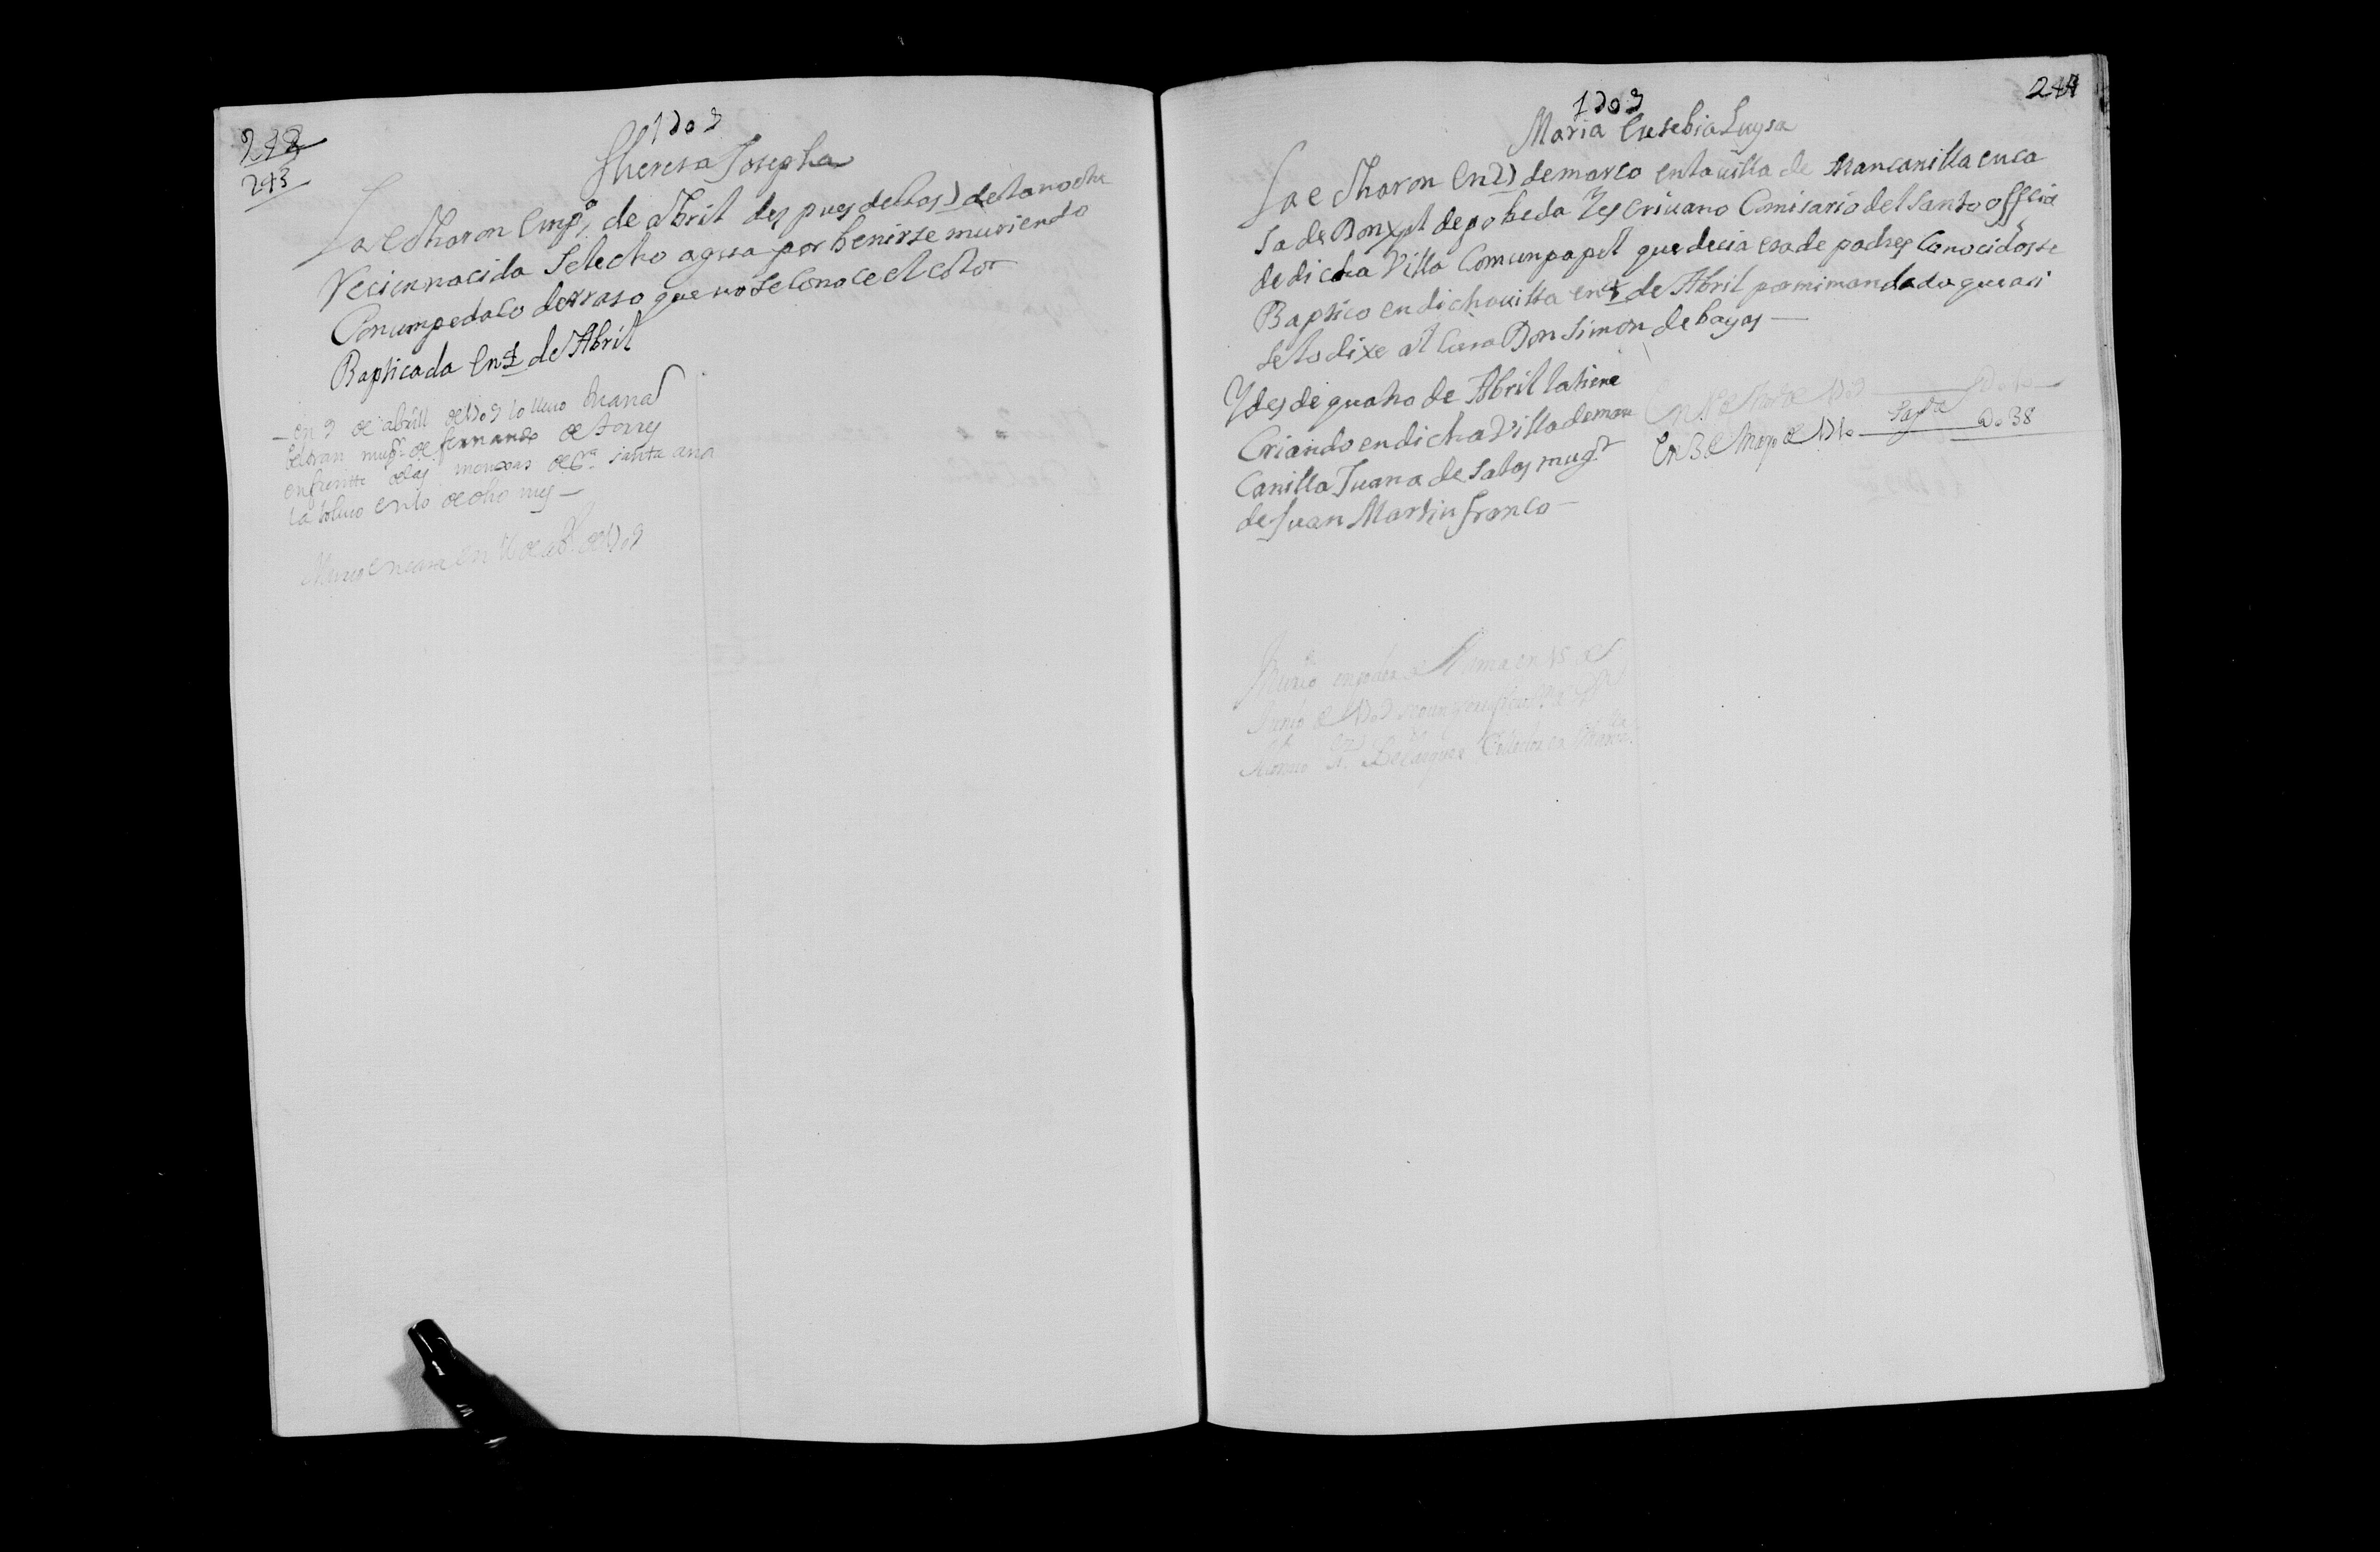 243
1709
Theresa Josepha
La echaron en pº. de Abril despues de las 7 de la noche
Recien nacida se le cho agua por benirse muriendo
Con un pedaco de rraso que no se conoce el color
Bapticada en 4 de Abril
en 9 de abrill de 1709 la llevo Juana
beltran mugr. de fernando de torres
enfrentte de las monxas de Sra. santa ana
la bolvio en 10 de dho mes
Murio en casa en 11 de abl. de 1709
244
1709
Maria Eusebia Luysa
La echaron en 27 de marco en la villa de Mancanilla en ca
sa de Don xptl de pobeda Y escrivano Comisario del Santo officio
de dicha Villa Con un papel que decia era de padres Conocidos se
Baptico en dicha villa en 4 de Abril por mi mandado que asi
se lo dixe al Cura Don Simon de bayas
Y desde quatro de Abril la tiene
Criando en dicha Villa de man
Canilla Juana de Salas mugr
de Juan Martin franco
En 3 de Mayo de 1710 Pagse Do 38
Murio en poder del Ama en 15 de
Junio de 1709